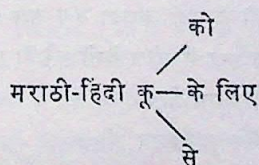 को
मराठी-हिंदी कू — के लिए
से